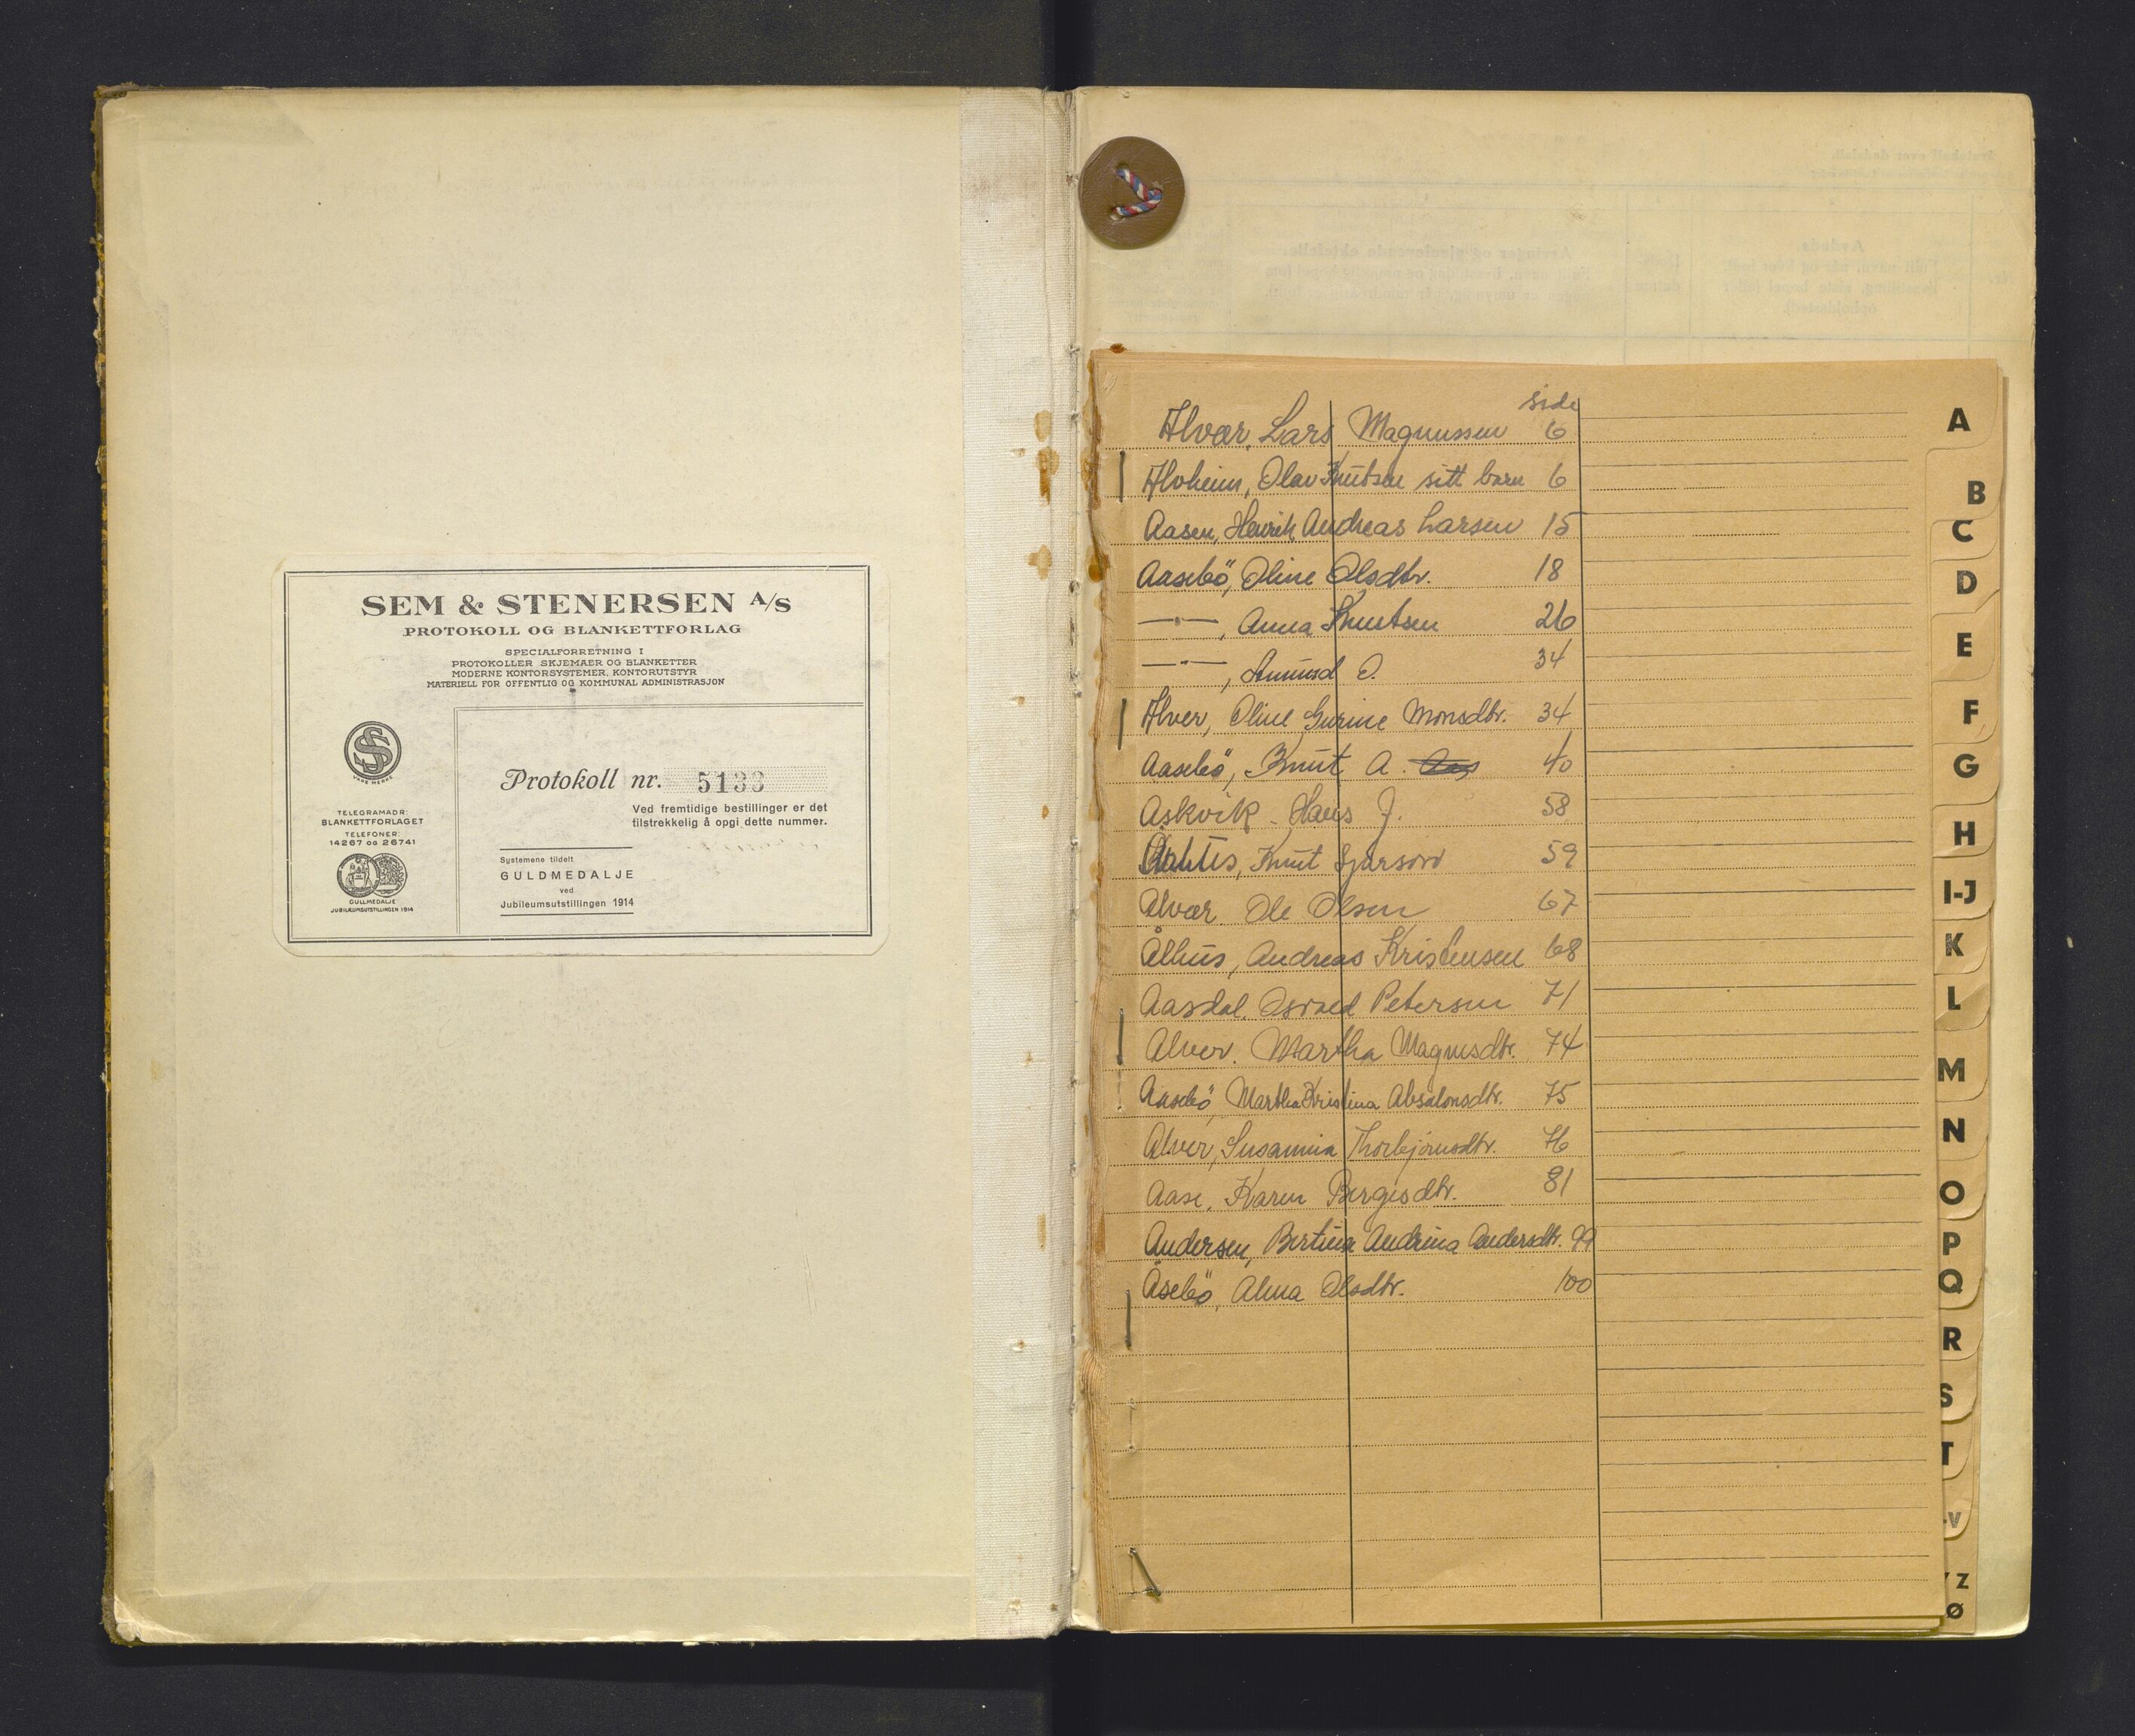 SEM & STENERSEN A/S
PROTOKOLL OG BLANKETTFORLAG
SPECIALFORRETNING I
PROTOKOLLER SKJEMAER OG BLANKETTER
MODERNE KONTORSYSTEMER, KONTORUTSTYR
MATERIELL FOR OFFENTLIG OG KOMMUNAL ADMINISTRASJON
SS
VARE MERKE
TELEGRAMADR.:
BLANKETTFORLAGET
TELEFONER:
14267 OG 26741
GULLMEDALJE
JUBILÆUMSUTSTILLINGEN 1914
Protokoll nr. 5133
Ved fremtidige bestillinger er det
tilstrekkelig å opgi dette nummer.
Systemene tildelt
GULDMEDALJE
ved
Jubileumsutstillingen 1914
side
Alvær, Lars Magnussen 6
Alvheim, Olav Knutsen sitt barn 6
Aasen, Henrik Andreas Larsen 15
Aasebö, Oline Olsdtr. 18
—"—, Anna Knutsen 26
—"—, Amund O. 34
Alver, Oline Gurine Monsdtr. 34
Aasebö, Knut A. 40
Askvik - Hans J. 58
Knut 59
Alvær. Ole Olsen 67
Ålhus, Andreas Kristensen 68
Aasdal. Osvald Petersen 71
Alver. Martha Magnesdtr. 74
Aasebö, Martha Kristina Absalonsdtr. 75
Alver, Susanna Thorbjørnsdtr. 76
Aase, Karen Børgesdtr. 81
Andersen, Bertina Andrina Andersdtr. 99
Åsebö, Alma Olsdtr. 100
A
B
C
D
E
F
G
H
I-J
K
L
M
N
O
P
Q
R
S
T
-V
Z
Ø